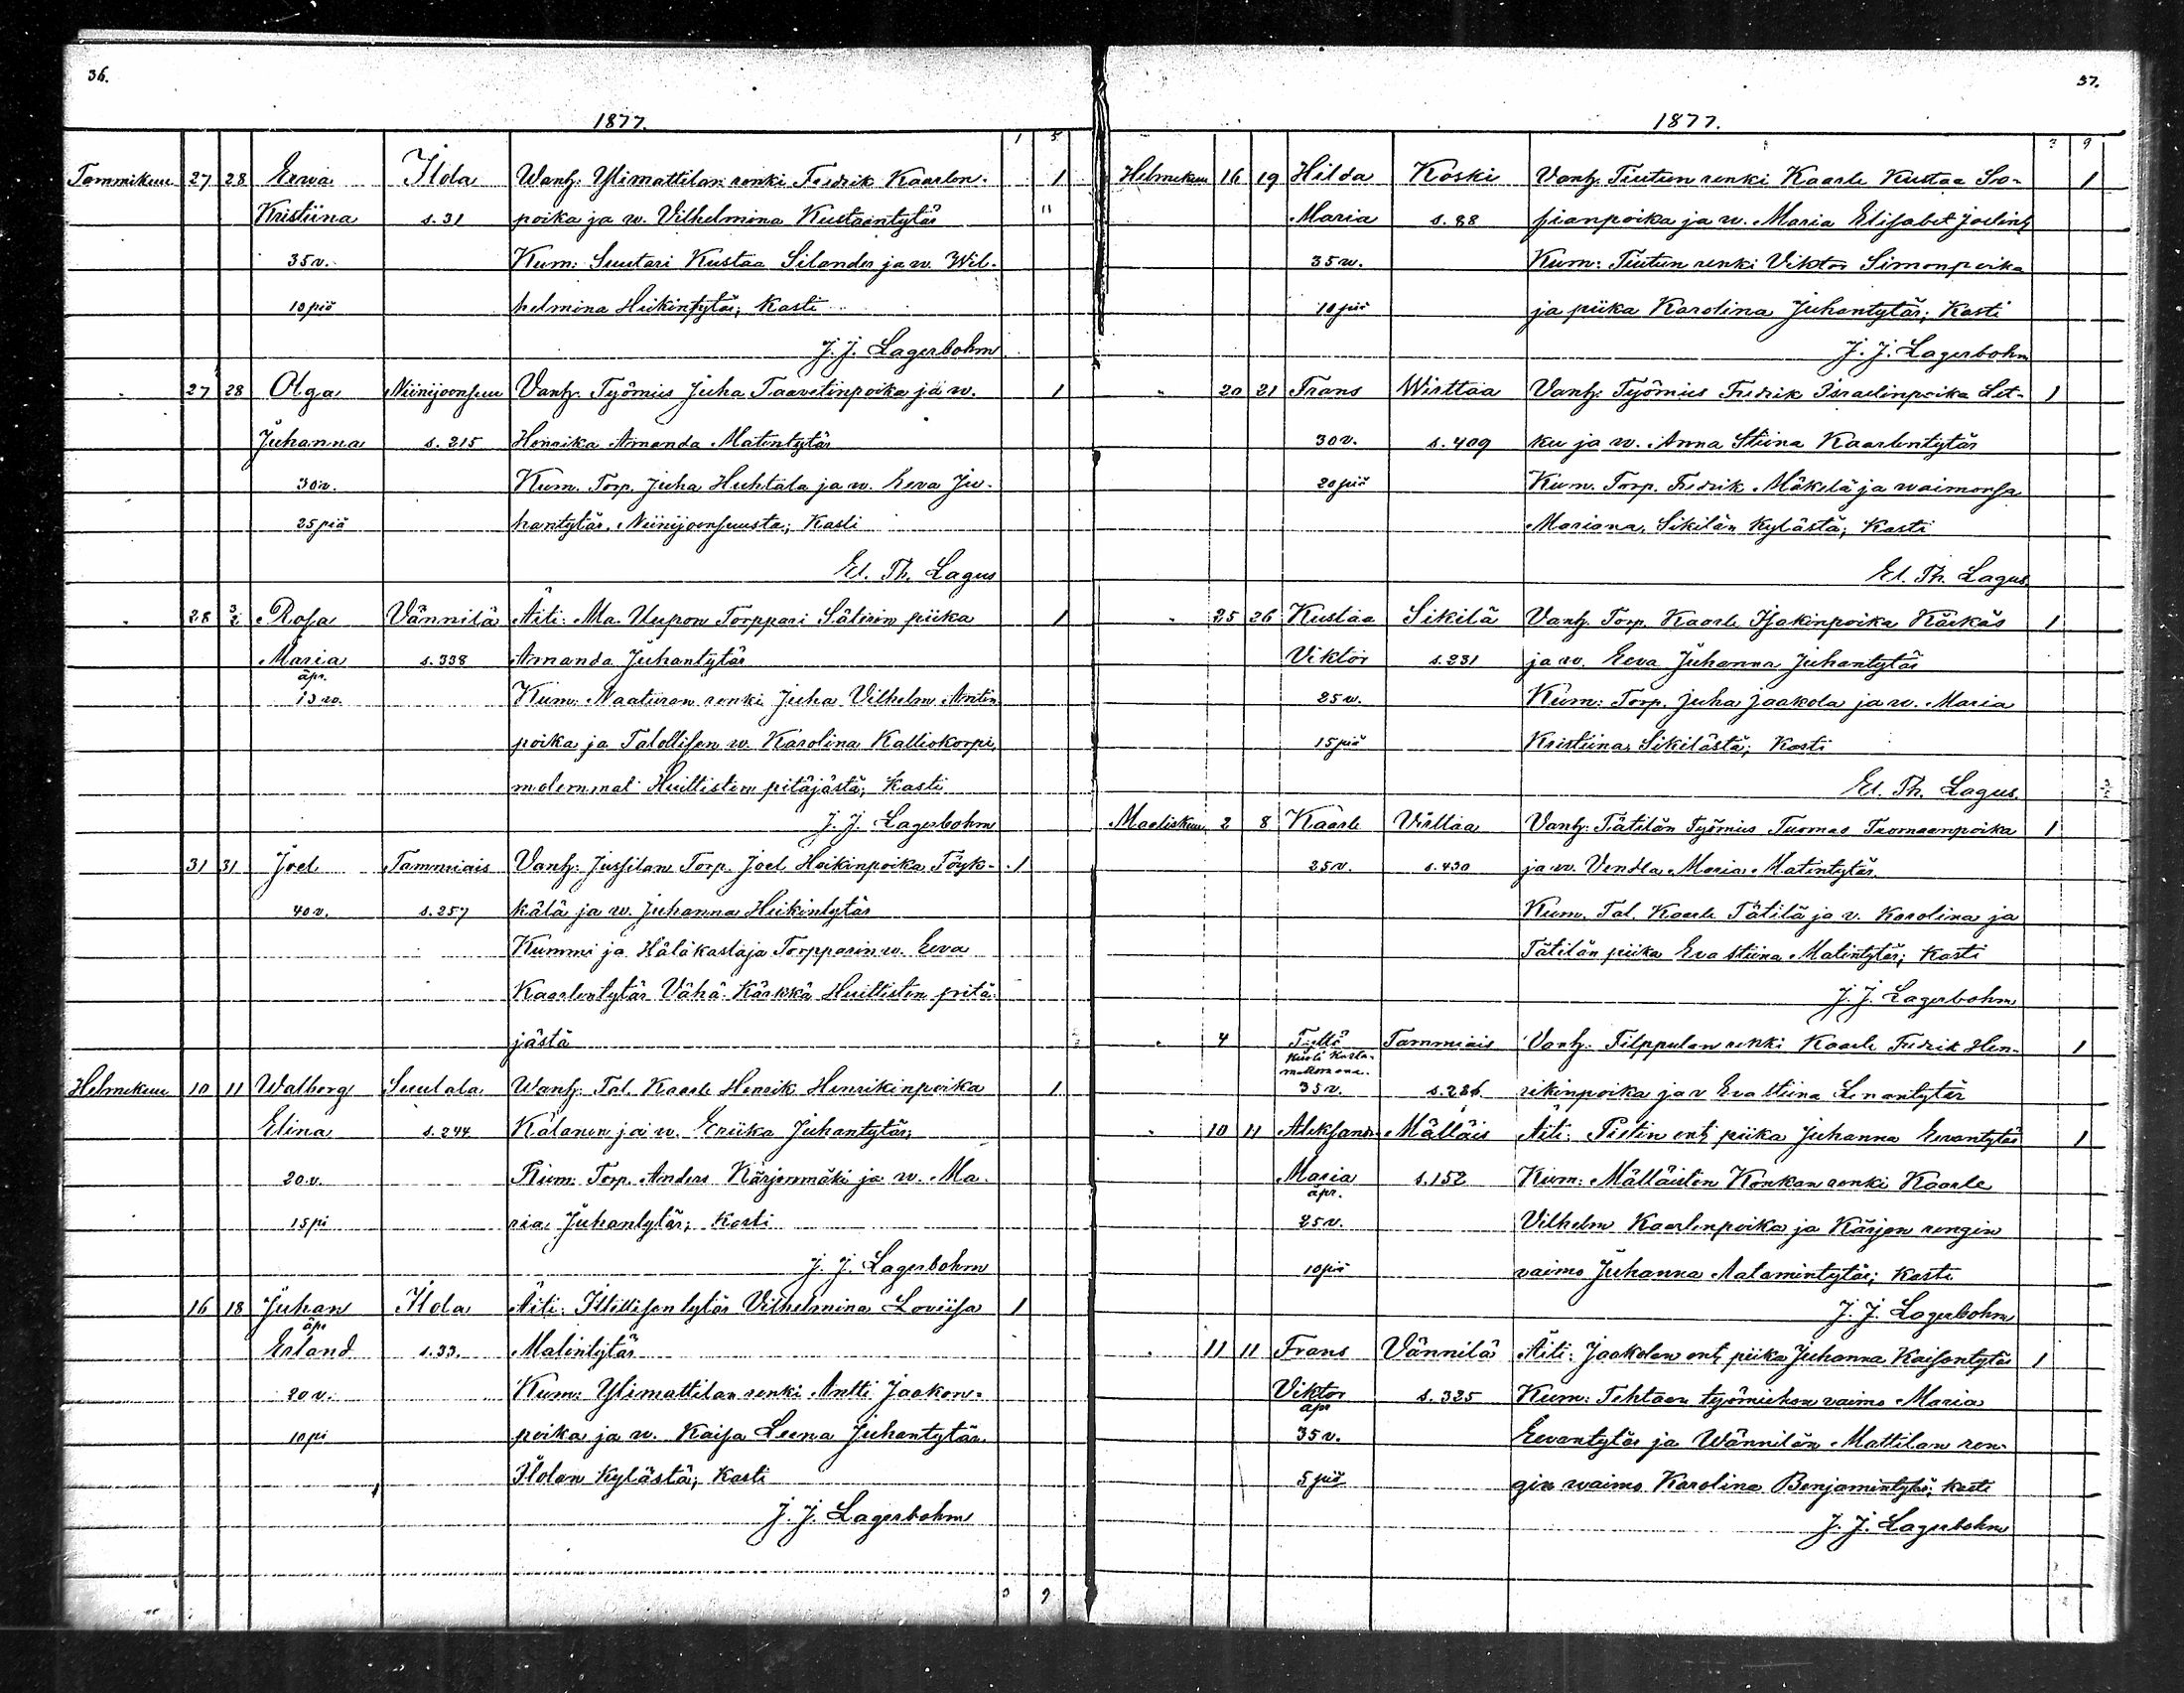 36.
1877.
1 5
Tammikuu 27 28 Eeva Ilola Wanh: Ylimattilan renki Fredrik Kaarlen- 1
Kristiina s. 31 poika ja w. Vilhelmina Kustaantytär "
35 v. Kum: Suutari Kustaa Silander ja w. Wil-
10 piä helmina Heikintytär; Kasti
J. J. Lagerbohm
" 27 28 Olga Niinijoensuu Vanh: Työmies Juha Taavetinpoika ja w. 1
Juhanna s. 215 Henrika Amanda Matintytär
30 v. Kum. Torp. Juha Huhtala ja w. Eeva Ju-
25 piä hantytär, Niinijoensuusta; Kasti
El. Th. Lagus
" 28 3/2 Rosa Vännilä Äiti: Ma. Uupon Torppari Säterin piika 1
Maria s. 338 Amanda Juhantytär
äpr.
13 w. Kum: Naaturan renki Juha Vilhelm Antin
poika ja Talollisen w. Karolina Kalliokorpi,
molemmat Huittisten pitäjästä; Kasti
J. J. Lagerbohm
31 31 Joel Tammiais Vanh: Jussilan Torp. Joel Heikinpoika Töyk- 1
40 v. s. 257 kälä ja w. Juhanna Heikintytär
Kummi ja Hätäkastaja Torpparin w. Eeva
Kaarlentytär Vähä-Kärkkä Huittisten pitä-
jästä
Helmikuu 10 11 Walborg Suutala Wanh: Tal. Kaarle Henrik Henrikinpoika 1
Elina s. 244 Kälanen ja w. Eriika Juhantytär;
20 v. Kum: Torp. Anders Kärjenmäki ja w. Ma-
15 pi ria Juhantytär; Kasti
J. J. Lagerbohm
16 18 Juhan Ilola Äiti: Itsellisen tytär Vilhelmina Loviisa 1
äpr
Erland s. 33. Matintytär
20 v. Kum: Ylimattilan renki Antti Jaakon-
10 pi poika ja w. Kaisa Leena Juhantytär
Ilolan Kylästä; Kasti
J. J. Lagerbohm
3 9
37.
1877.
3 9
Helmikuu 16 19 Hilda Koski Vanh: Tiutun renki Kaarle Kustaa So- 1
Maria s. 88 fianpoika ja w. Maria Elisabet Joelint
35 w. Kum: Tiutun renki Viktor Simonpoika
10 piä ja piika Karolina Juhantytär; Kasti
J. J. Lagerbohm
" 20 21 Frans Wirttaa Vanh: Työmies Fredrik Israelinpoika Let- 1
30 v. s. 409 ku ja w. Anna Stiina Kaarlentytär
20 piä Kum. Torp. Fredrik Mäkelä ja waimonsa
Mariana, Sikilän Kylästä; Kasti
El. Th. Lagus
" 25 26 Kustaa Sikilä Vanh: Torp. Kaarle Isakinpoika Kärkäs 1
Viktor s. 231 ja w. Eeva Juhanna Juhantytär
25 v. Kum: Torp. Juha Jaakola ja w. Maria
15 piä Kristiina, Sikilästä; Kasti
El. Th. Lagus
Maaliskuu 2 8 Kaarle Virttaa Vanh: Tätilän Työmies Tuomas Tuomaanpoika 1
25 v. s. 430 ja w. Vendla Maria Matintytär
Kum. Tal. Kaarle Tätilä ja v. Karolina ja
Tätilän piika Eva Stiina Matintytär; Kasti
J. J. Lagerbohm
" 4 Tyttö Tammiais Vanh: Filppulan renki Kaarle Fredrik Hen- 1
kuoli kasta-
mattomana.
35 v. s. 286 rikinpoika ja v Eva Stiina Lenantytär
" 10 11 Aleksandr Mälläis Äiti: Pietin ent. piika Juhanna Eevantytär 1
Maria s. 152 Kum: Mälläisten Könkan renki Kaarle
äpr.
25 v. Vilhelm Kaarlenpoika ja Kärjen rengin
10 piä vaimo Juhanna Aatamintytär; Kasti
J. J. Lagerbohm
" 11 11 Frans Vännilä Äiti: Jaakolan ent. piika Juhanna Kaisantytär 1
Viktor s. 325 Kum: Tehtaan työmiehen vaimo Maria
äpr
35 v. Eevantytär ja Wännilän Mattilan ren-
5 piä gin waimo Karolina Benjamintytär; kasti
J. J. Lagerbohm